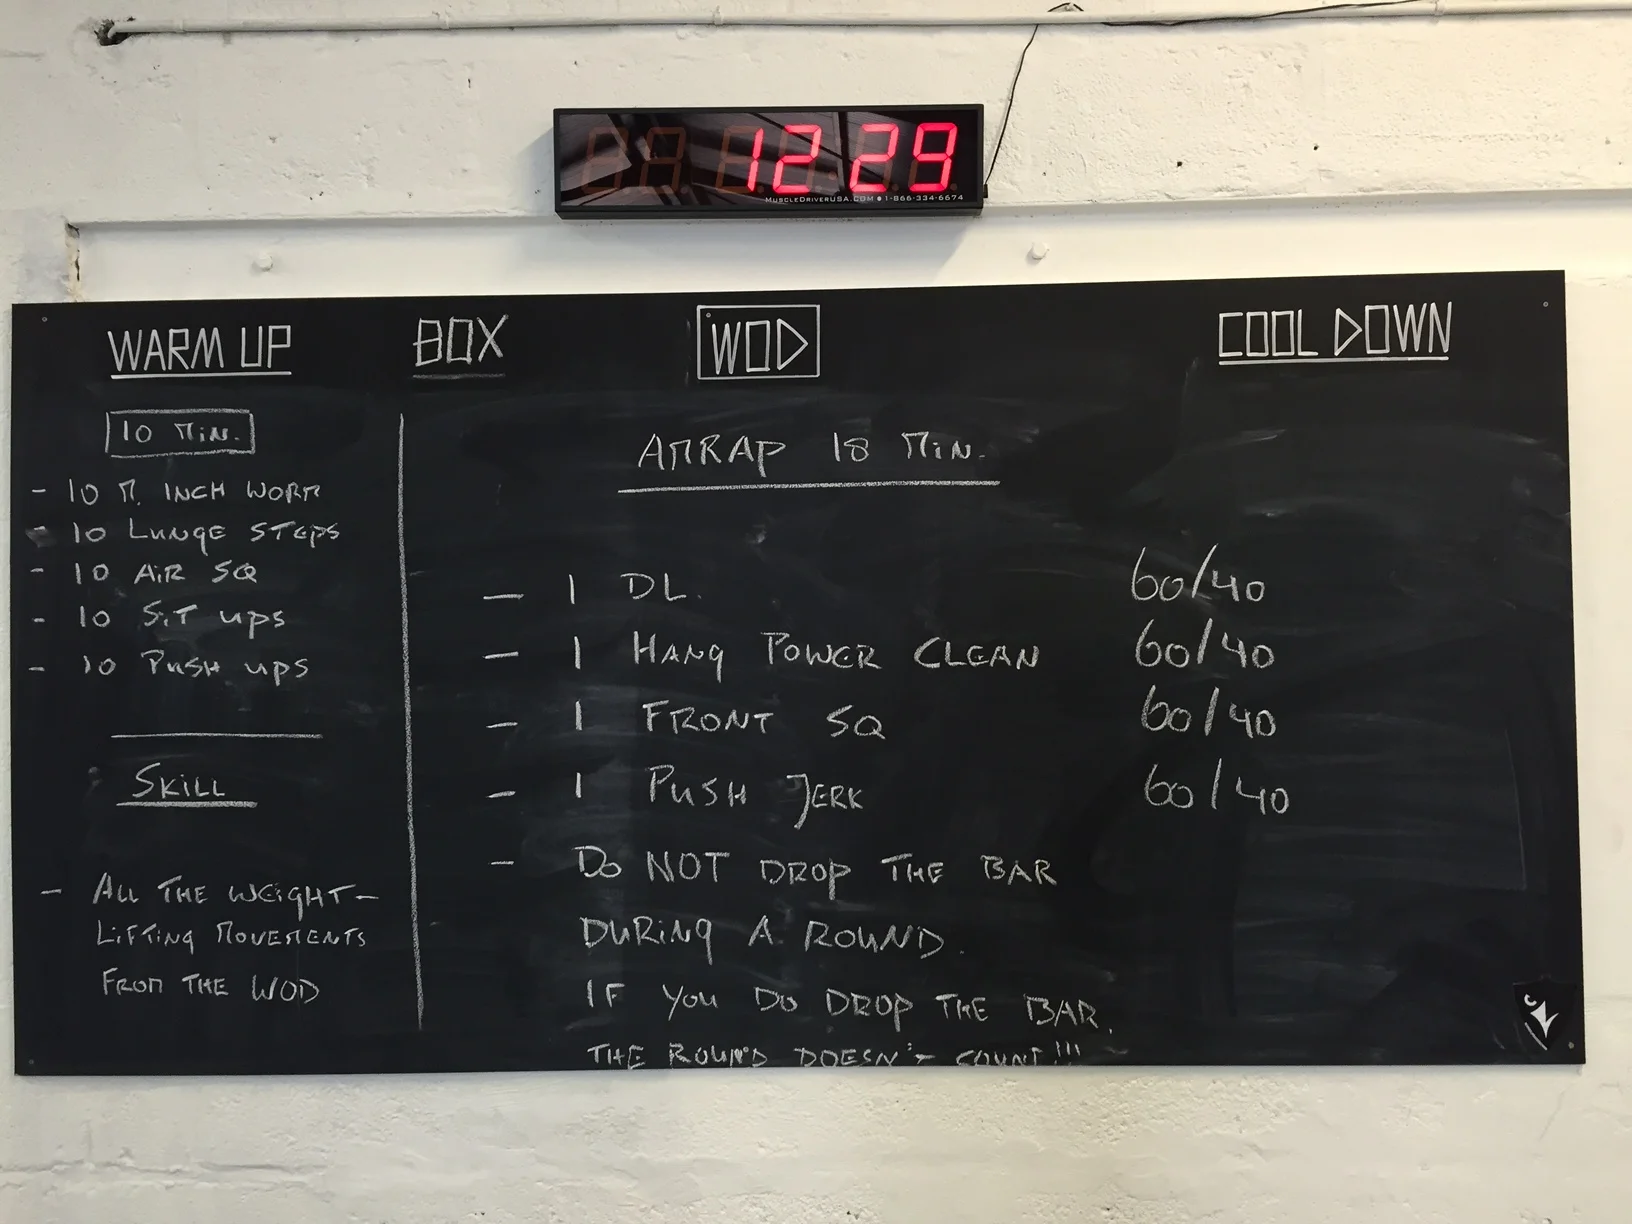 12 29
MUSCLEDRIVERUSA.COM ● 1-866-334-6674
WARM UP
10 MIN.
- 10 M. INCH WORM
- 10 LUNGE STEPS
- 10 AIR SQ
- 10 SIT UPS
- 10 PUSH UPS
SKILL
- ALL THE WEIGHT-
LIFTING MOVEMENTS
FROM THE WOD
BOX
WOD
AMRAP 18 MIN.
- 1 DL. 60/40
- 1 HANG POWER CLEAN 60/40
- 1 FRONT SQ 60/40
- 1 PUSH JERK 60/40
- DO NOT DROP THE BAR
DURING A ROUND.
IF YOU DO DROP THE BAR,
THE ROUND DOESN'T COUNT!!!
COOL DOWN